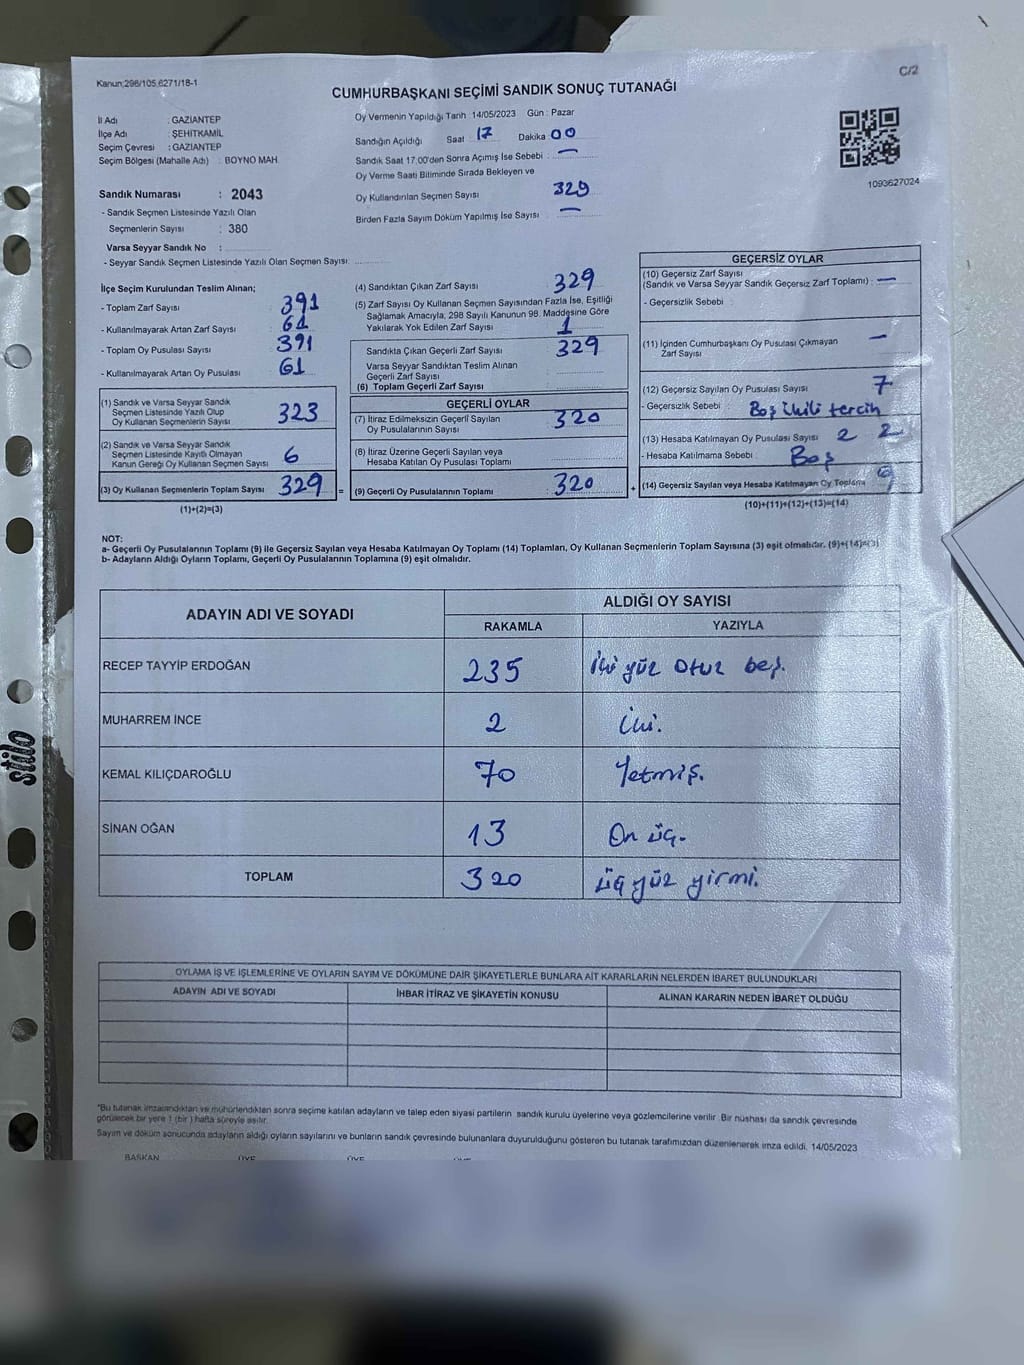 Kanun:298/105,6271/18-1
C/2
CUMHURBAŞKANI SEÇİMİ SANDIK SONUÇ TUTANAĞI
İl Adı : GAZİANTEP
İlçe Adı : ŞEHİTKAMİL
Seçim Çevresi : GAZİANTEP
Seçim Bölgesi (Mahalle Adı) : BOYNO MAH.
Sandık Numarası : 2043
- Sandık Seçmen Listesinde Yazılı Olan
Seçmenlerin Sayısı : 380
Varsa Seyyar Sandık No :
- Seyyar Sandık Seçmen Listesinde Yazılı Olan Seçmen Sayısı:
Oy Vermenin Yapıldığı Tarih 14/05/2023 Gün : Pazar
Sandığın Açıldığı Saat 17 Dakika 00
Sandık Saat 17:00'den Sonra Açılmış İse Sebebi : —
Oy Verme Saati Bitiminde Sırada Bekleyen ve
Oy Kullandırılan Seçmen Sayısı 329
Birden Fazla Sayım Döküm Yapılmış İse Sayısı : —
1093627024
İlçe Seçim Kurulundan Teslim Alınan;
- Toplam Zarf Sayısı : 391
- Kullanılmayarak Artan Zarf Sayısı : 61
- Toplam Oy Pusulası Sayısı : 391
- Kullanılmayarak Artan Oy Pusulası : 61
(1) Sandık ve Varsa Seyyar Sandık
Seçmen Listesinde Yazılı Olup
Oy Kullanan Seçmenlerin Sayısı 323
(2) Sandık ve Varsa Seyyar Sandık
Seçmen Listesinde Kayıtlı Olmayan
Kanun Gereği Oy Kullanan Seçmen Sayısı 6
(3) Oy Kullanan Seçmenlerin Toplam Sayısı 329 =
(1)+(2)=(3)
(4) Sandıktan Çıkan Zarf Sayısı : 329
(5) Zarf Sayısı Oy Kullanan Seçmen Sayısından Fazla İse, Eşitliği
Sağlamak Amacıyla, 298 Sayılı Kanunun 98. Maddesine Göre
Yakılarak Yok Edilen Zarf Sayısı : 1
Sandıkta Çıkan Geçerli Zarf Sayısı : 329
Varsa Seyyar Sandıktan Teslim Alınan
Geçerli Zarf Sayısı
(6) Toplam Geçerli Zarf Sayısı
GEÇERLİ OYLAR
(7) İtiraz Edilmeksizin Geçerli Sayılan
Oy Pusulalarının Sayısı : 320
(8) İtiraz Üzerine Geçerli Sayılan veya
Hesaba Katılan Oy Pusulası Toplamı
(9) Geçerli Oy Pusulalarının Toplamı : 320 +
GEÇERSİZ OYLAR
(10) Geçersiz Zarf Sayısı
(Sandık ve Varsa Seyyar Sandık Geçersiz Zarf Toplamı) : —
- Geçersizlik Sebebi :
(11) İçinden Cumhurbaşkanı Oy Pusulası Çıkmayan
Zarf Sayısı —
(12) Geçersiz Sayılan Oy Pusulası Sayısı : 7
- Geçersizlik Sebebi : Boş ikili tercih
(13) Hesaba Katılmayan Oy Pusulası Sayısı 2 2
- Hesaba Katılmama Sebebi : Boş
(14) Geçersiz Sayılan veya Hesaba Katılmayan Oy Toplamı
(10)+(11)+(12)+(13)=(14)
NOT:
a- Geçerli Oy Pusulalarının Toplamı (9) ile Geçersiz Sayılan veya Hesaba Katılmayan Oy Toplamı (14) Toplamları, Oy Kullanan Seçmenlerin Toplam Sayısına (3) eşit olmalıdır. (9)+(14)=(3)
b- Adayların Aldığı Oyların Toplamı, Geçerli Oy Pusulalarının Toplamına (9) eşit olmalıdır.
ADAYIN ADI VE SOYADI ALDIĞI OY SAYISI
RAKAMLA YAZIYLA
RECEP TAYYİP ERDOĞAN 235 İki yüz otuz beş.
MUHARREM İNCE 2 İki.
KEMAL KILIÇDAROĞLU 70 Yetmiş.
SİNAN OĞAN 13 On üç.
TOPLAM 320 üç yüz yirmi.
OYLAMA İŞ VE İŞLEMLERİNE VE OYLARIN SAYIM VE DÖKÜMÜNE DAİR ŞİKAYETLERLE BUNLARA AİT KARARLARIN NELERDEN İBARET BULUNDUKLARI
ADAYIN ADI VE SOYADI İHBAR İTİRAZ VE ŞİKAYETİN KONUSU ALINAN KARARIN NEDEN İBARET OLDUĞU
*Bu tutanak imzalandıktan ve mühürlendikten sonra seçime katılan adayların ve talep eden siyasi partilerin sandık kurulu üyelerine veya gözlemcilerine verilir. Bir nüshası da sandık çevresinde
görülecek bir yere 1 (bir) hafta süreyle asılır.
Sayım ve döküm sonucunda adayların aldığı oyların sayılarını ve bunların sandık çevresinde bulunanlara duyurulduğunu gösteren bu tutanak tarafımızdan düzenlenerek imza edildi. 14/05/2023
BAŞKAN ÜYE ÜYE ÜYE
stilo